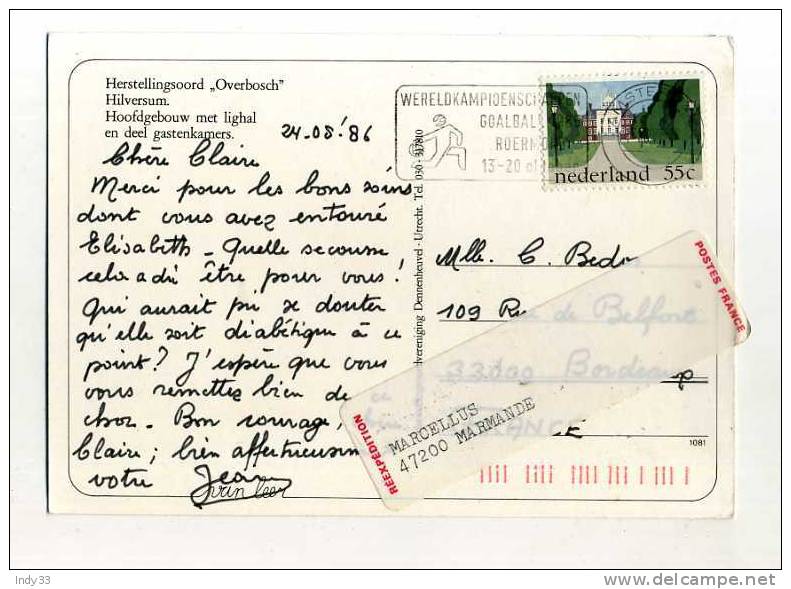 Herstellingsoord „Overbosch”
Hilversum.
Hoofdgebouw met lighal
en deel gastenkamers.
24-08-'86
Chère Claire
Merci pour les bons soins
dont vous avez entouré
Elisabeth - Quelle secousse
cela a dû être pour vous!
Qui aurait pu se douter
qu'elle soit diabétique à ce
point? J'espère que vous
vous remettez bien de
choc. Bon courage,
Claire; bien affectueusem
votre Jean
van leer
WERELDKAMPIOENSCHAPPEN
GOALBALL
ROERMOND
13-20
nederland 55c
Utrecht. Tel. 030-
Mlle. C. Bedo
109 Rue de Belfort
33000 Bordeaux
FRANCE
POSTES FRANCE
RÉEXPÉDITION
MARCELLUS
47200 MARMANDE
1081
Indy33
delcampe.net